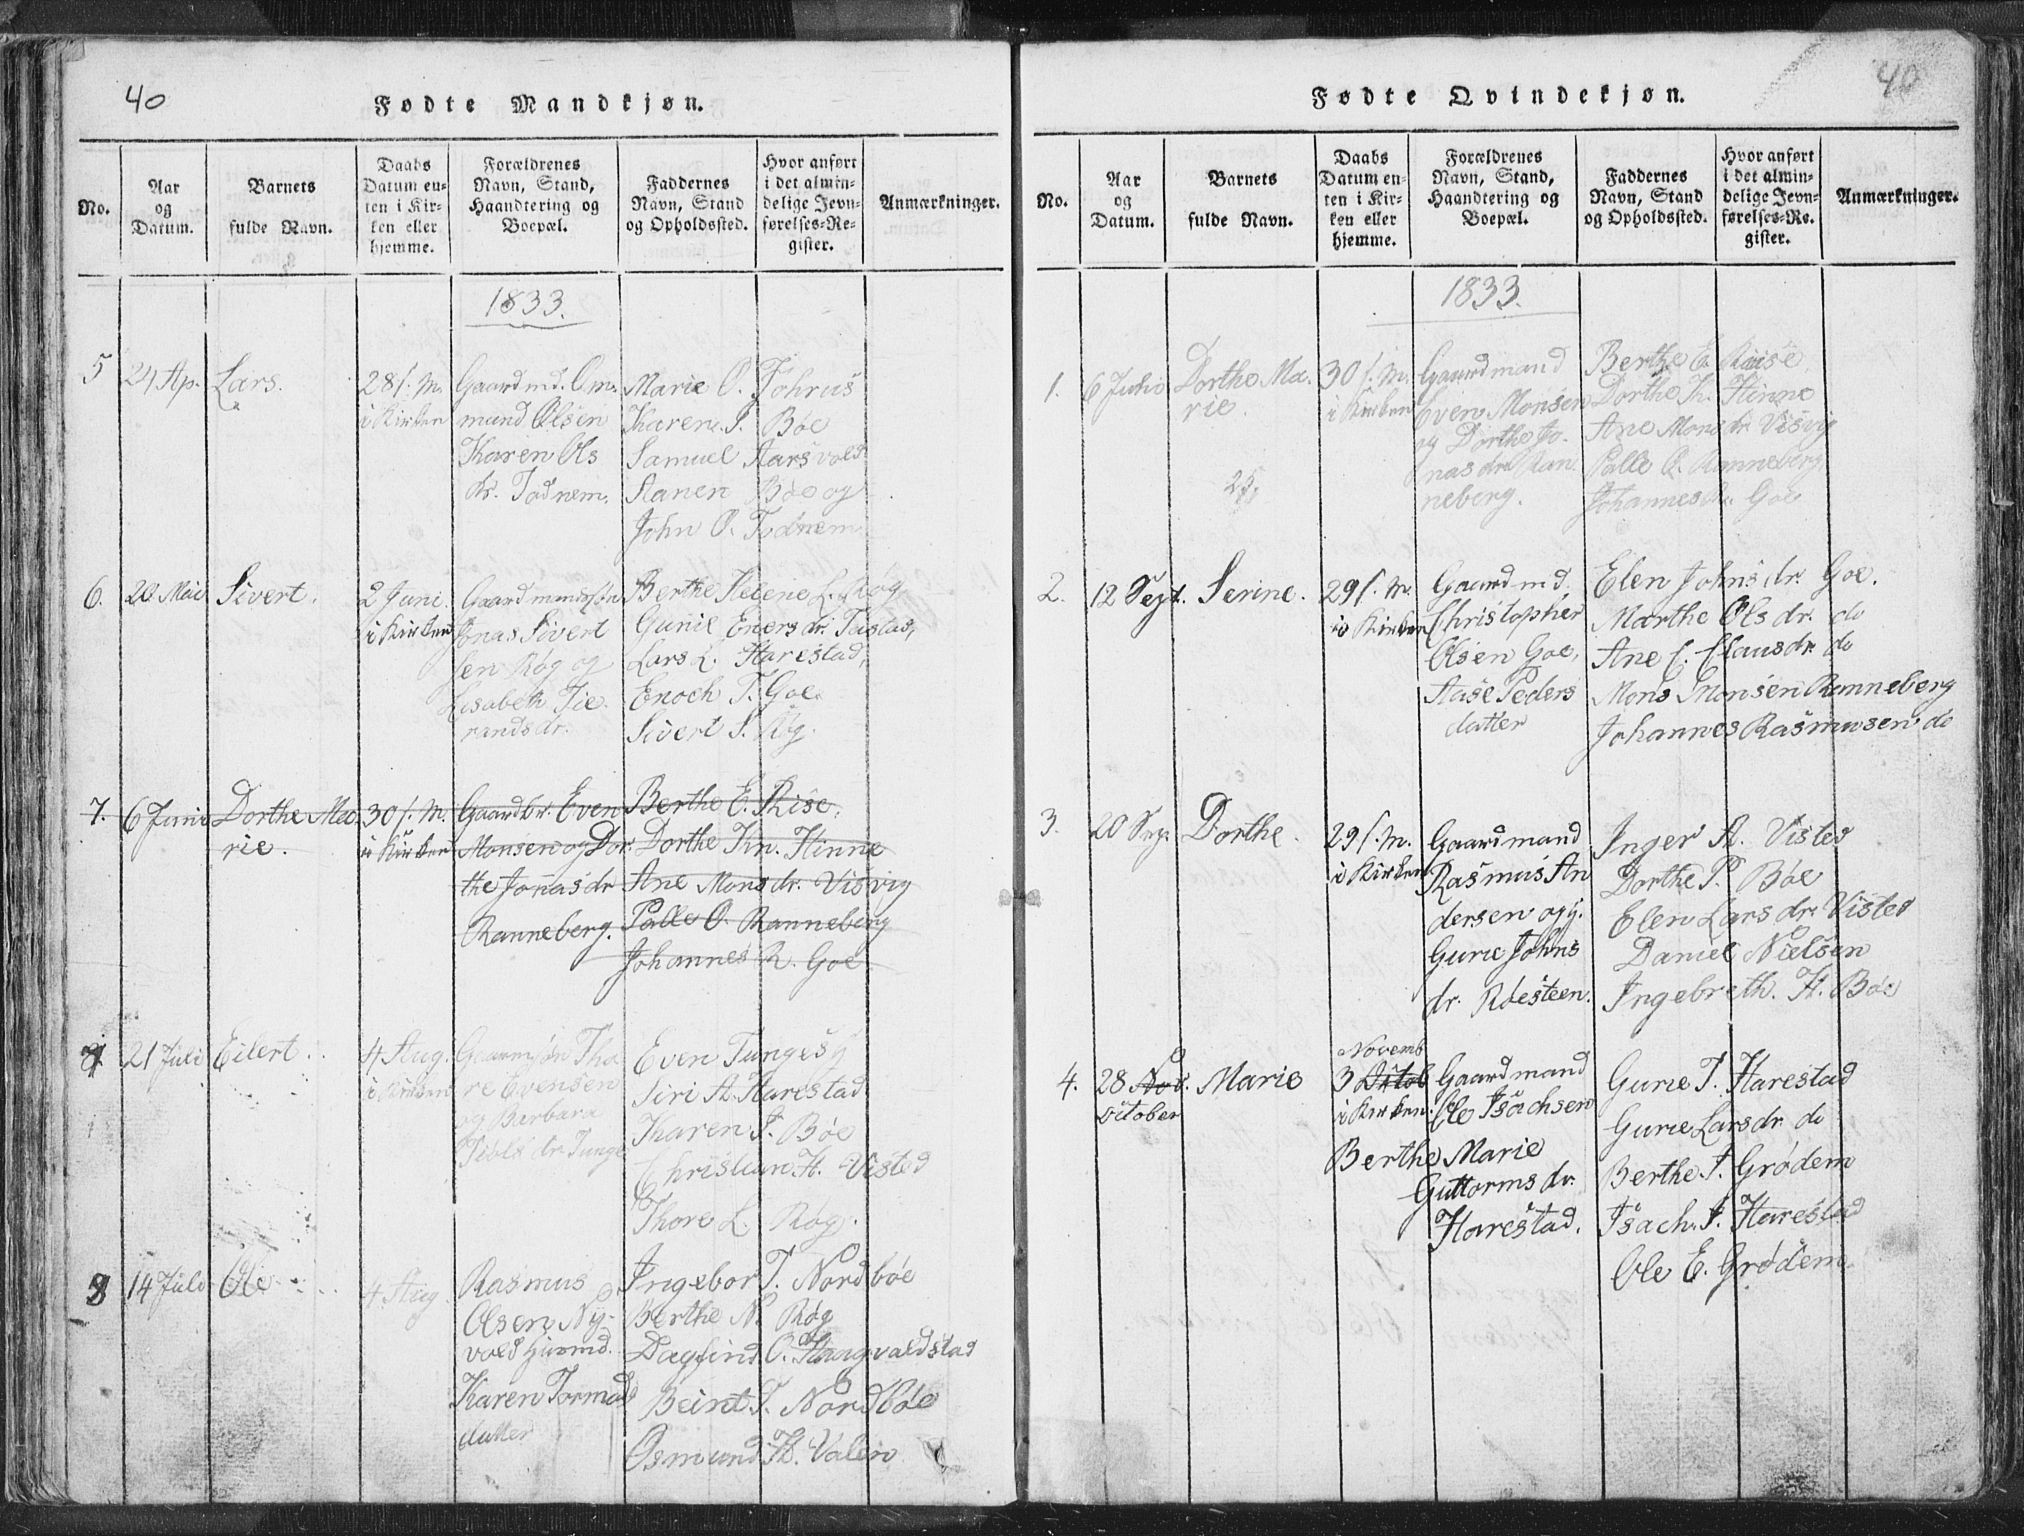 40
Fødte Mandkjøn.
No.
Aar
og
Datum.
Barnets
fulde Navn.
Daabs
Datum en-
ten i Kir-
ken eller
hjemme.
Forældrenes
Navn, Stand,
Haandtering og
Boepæl.
Faddernes
Navn, Stand
og Opholdssted.
Hvor anført
i det almin-
delige Jevn-
førelses-Re-
gister.
Anmærkninger.
1833.
5
24 Ap.
Lars.
28 f. M.
i Kirken
Gaardmd. Om-
mund Olsen
Karen Ols
dr. Todnem.
Marie O. Tohrus
Karen J. Bøe
Samuel Aarsvold
Hanen Bøe og
John O. Todnem
6.
20 Mai
Sivert.
2 Juni.
i Kirken
Jonas Sivert
sen Røg og
Lisabeth Tje-
randsdr.
Berthe Helene L. Røg,
Gunil Enersdr. Tastad,
Lars L. Harestad,
Enoch T. Goe
Sivert S. Røg.
7.
6 Juni
Dorthe Ma-
rie.
30 f. M.
i Kirken
Gaardbr. Even
Monsen og Dor-
the Jonasdr
Ranneberg.
Berthe E. Rise,
Dorthe Kn. Hinne
Ane Monsdr. Visvig
Palle O. Ranneberg
Johannes R. Goe
21 Juli
Eilert.
4 Aug.
i Kirken
Tho
re Evensen
og Barbara
dr Tunge
Even Tunge
Siri A. Harestad
Karen J. Bøe
Christian H. Visted
Thore L. Røg.
14 Juli
Ole
4 Aug.
Rasmus
Olsen Ny-
vold Huusmd.
Karen Tormod
datter
Ingebor T. Nordbøe
Berthe N. Røg
Dagfind O. Haugvaldstad
Beint T. Nordbøe
Osmund H. Valen
40
Fødte Qvindekjøn.
No.
Aar
og
Datum.
Barnets
fulde Navn.
Daabs
Datum en-
ten i Kir-
ken eller
hjemme.
Forældrenes
Navn, Stand,
Haandtering og
Boepæl.
Faddernes
Navn, Stand
og Opholdssted.
Hvor anført
i det almin-
delige Jevn-
førelses-Re-
gister.
Anmærkninger.
1833.
1.
6 Juni
Dorthe Ma-
rie.
30 f. M.
i Kirken
Gaardmand
Even Monsen
og Dorthe Jo-
nasdr Ran-
neberg.
Berthe E. Riise,
Dorthe K. Hinne
Ane Monsdr. Visvig
Palle O. Ranneberg,
Johannes R. Goe
2.
12 Sept.
Serine.
29 f. M.
i Kirken
Gaardmd.
Christopher
Olsen Goe,
Aase Peders
datter
Elen Johnsdr. Goe.
Marthe Olsdr. do
Ane C. Clausdr. do
Mons Monsen Ranneberg
Johannes Rasmusen do
3.
20 Sep.
Dorthe.
29 f. M.
i Kirken
Gaardmand
Rasmus An
dersen og
Gurie Johns
dr. Røesteen.
Inger A. Visted
Dorthe P. Bøe
Elen Larsdr. Visted
Daniel Nielsen
Ingebreth. H. Bøe
4.
28 Nov.
October
Marie
Novemb
3 Octob
i Kirken.
Gaardmand
Ole Isachsen
Berthe Marie
Guttormsdr.
Harestad.
Gurie T. Harestad
Gurie Larsdr. do
Berthe I. Grødem
Isach. I. Harestad
Ole E. Grødem